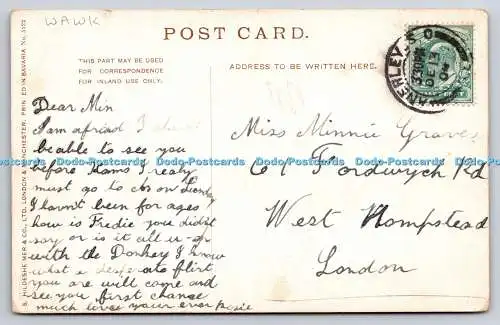 WAWK
POST CARD.
THIS PART MAY BE USED
FOR CORRESPONDENCE
FOR INLAND USE ONLY.
ADDRESS TO BE WRITTEN HERE.
S. HILDESHEIMER & CO., LTD. LONDON & MANCHESTER. PRINTED IN BAVARIA No. 5172
ANERLEY S.O
Dear Min
I am afriad I
be able to see you
before I really
must go to on
I havn't been for ages
how is Fredie you did'nt
say or is it all up
with the Donkey I know
what a desperate flirt
you are will come and
see you first chance
much love your ever
Miss Minnie Graves
61 Fordwych Rd
West Hampstead
London
Dodo-Postcards Dodo-Postcards Dodo-Postcards Dodo-Postcards Dodo-Postcards